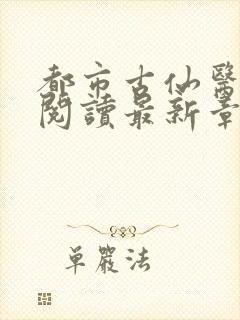 都市古仙醫
閱讀最新章
單嚴法